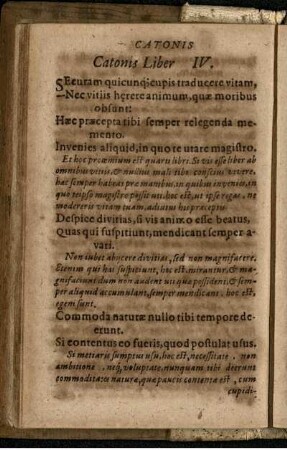 CATONIS
Catonis Liber IV.
SEcuram quicunq; cupis traducere vitam,
Nec vitiis hęrere animum, quæ moribus
obsunt:
Hæc præcepta tibi semper relegenda me-
mento.
Invenies aliquid, in quo te utare magistro.
Et hoc proœmium est quarti libri. Si vis esse liber ab
omnibus vitiis, & nullius mali tibi conscius vivere,
hæc semper habeas præ manibus, in quibus invenies, in
quo teipso magistro possis uti, hoc est, ut ipse regas, ac
modereris vitam tuam, adiutus his præceptis.
Despice divitias, si vis animo esse beatus,
Quas qui suspitiunt, mendicant semper a-
vari.
Non iubet abjicere divitias, sed non magnifacere.
Etenim qui has suspitiunt, hoc est, mirantur, & ma-
gnifaciunt dum non audent uti que possident, & sem-
per aliquid accumulant, semper mendicant, hoc est,
egem sunt.
Commoda naturæ nullo tibi tempore de-
erunt.
Si contentus eo fueris, quod postulat usus.
Si metiaris sumptus usu, hoc est, necessitate, non
ambitione, neq; voluptate, nunquam tibi deerunt
commoditates naturæ, quæ paucis contenta est, cum
cupidi-